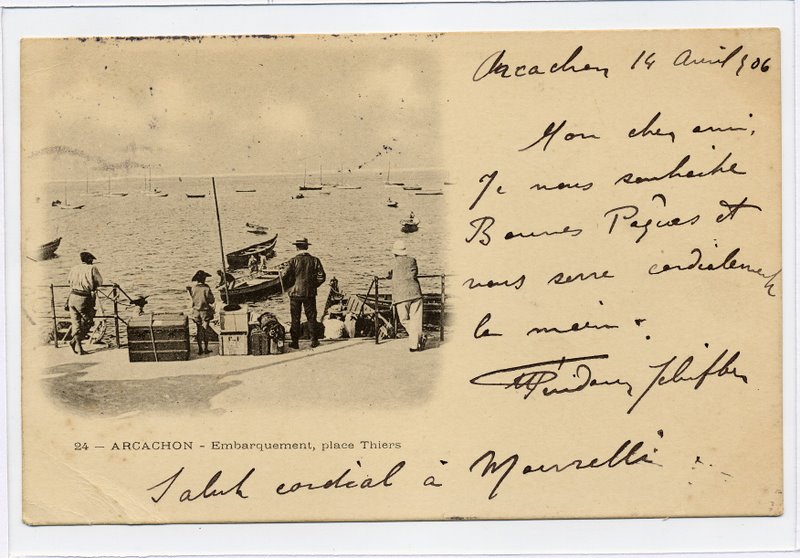 Arcachon 14 avril 906
Mon cher ami,
Je vous souhaite
Bonnes Pâques et
vous serre cordialement
la main.
24 — ARCACHON - Embarquement, place Thiers
Salut cordial à